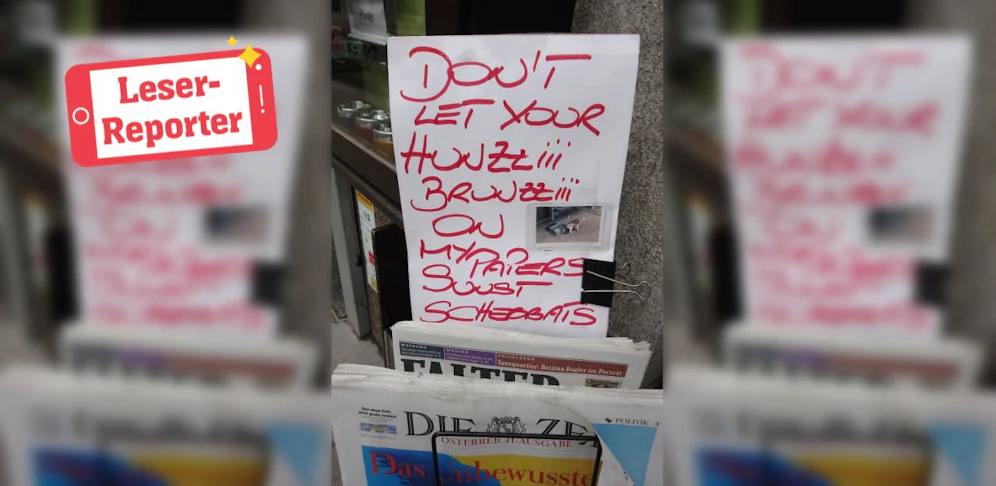 Leser-
Reporter
DON'T
LET YOUR
HUNZZiii
BRUNZZiii
ON
MY PAPERS
SUNST
SCHEBBATS
Tanzquartier: Bettina Kogler im Porträt
FALTER
DIE ZE
POLITIK
ÖSTERREICH-AUSGABE
Das Unbewusste